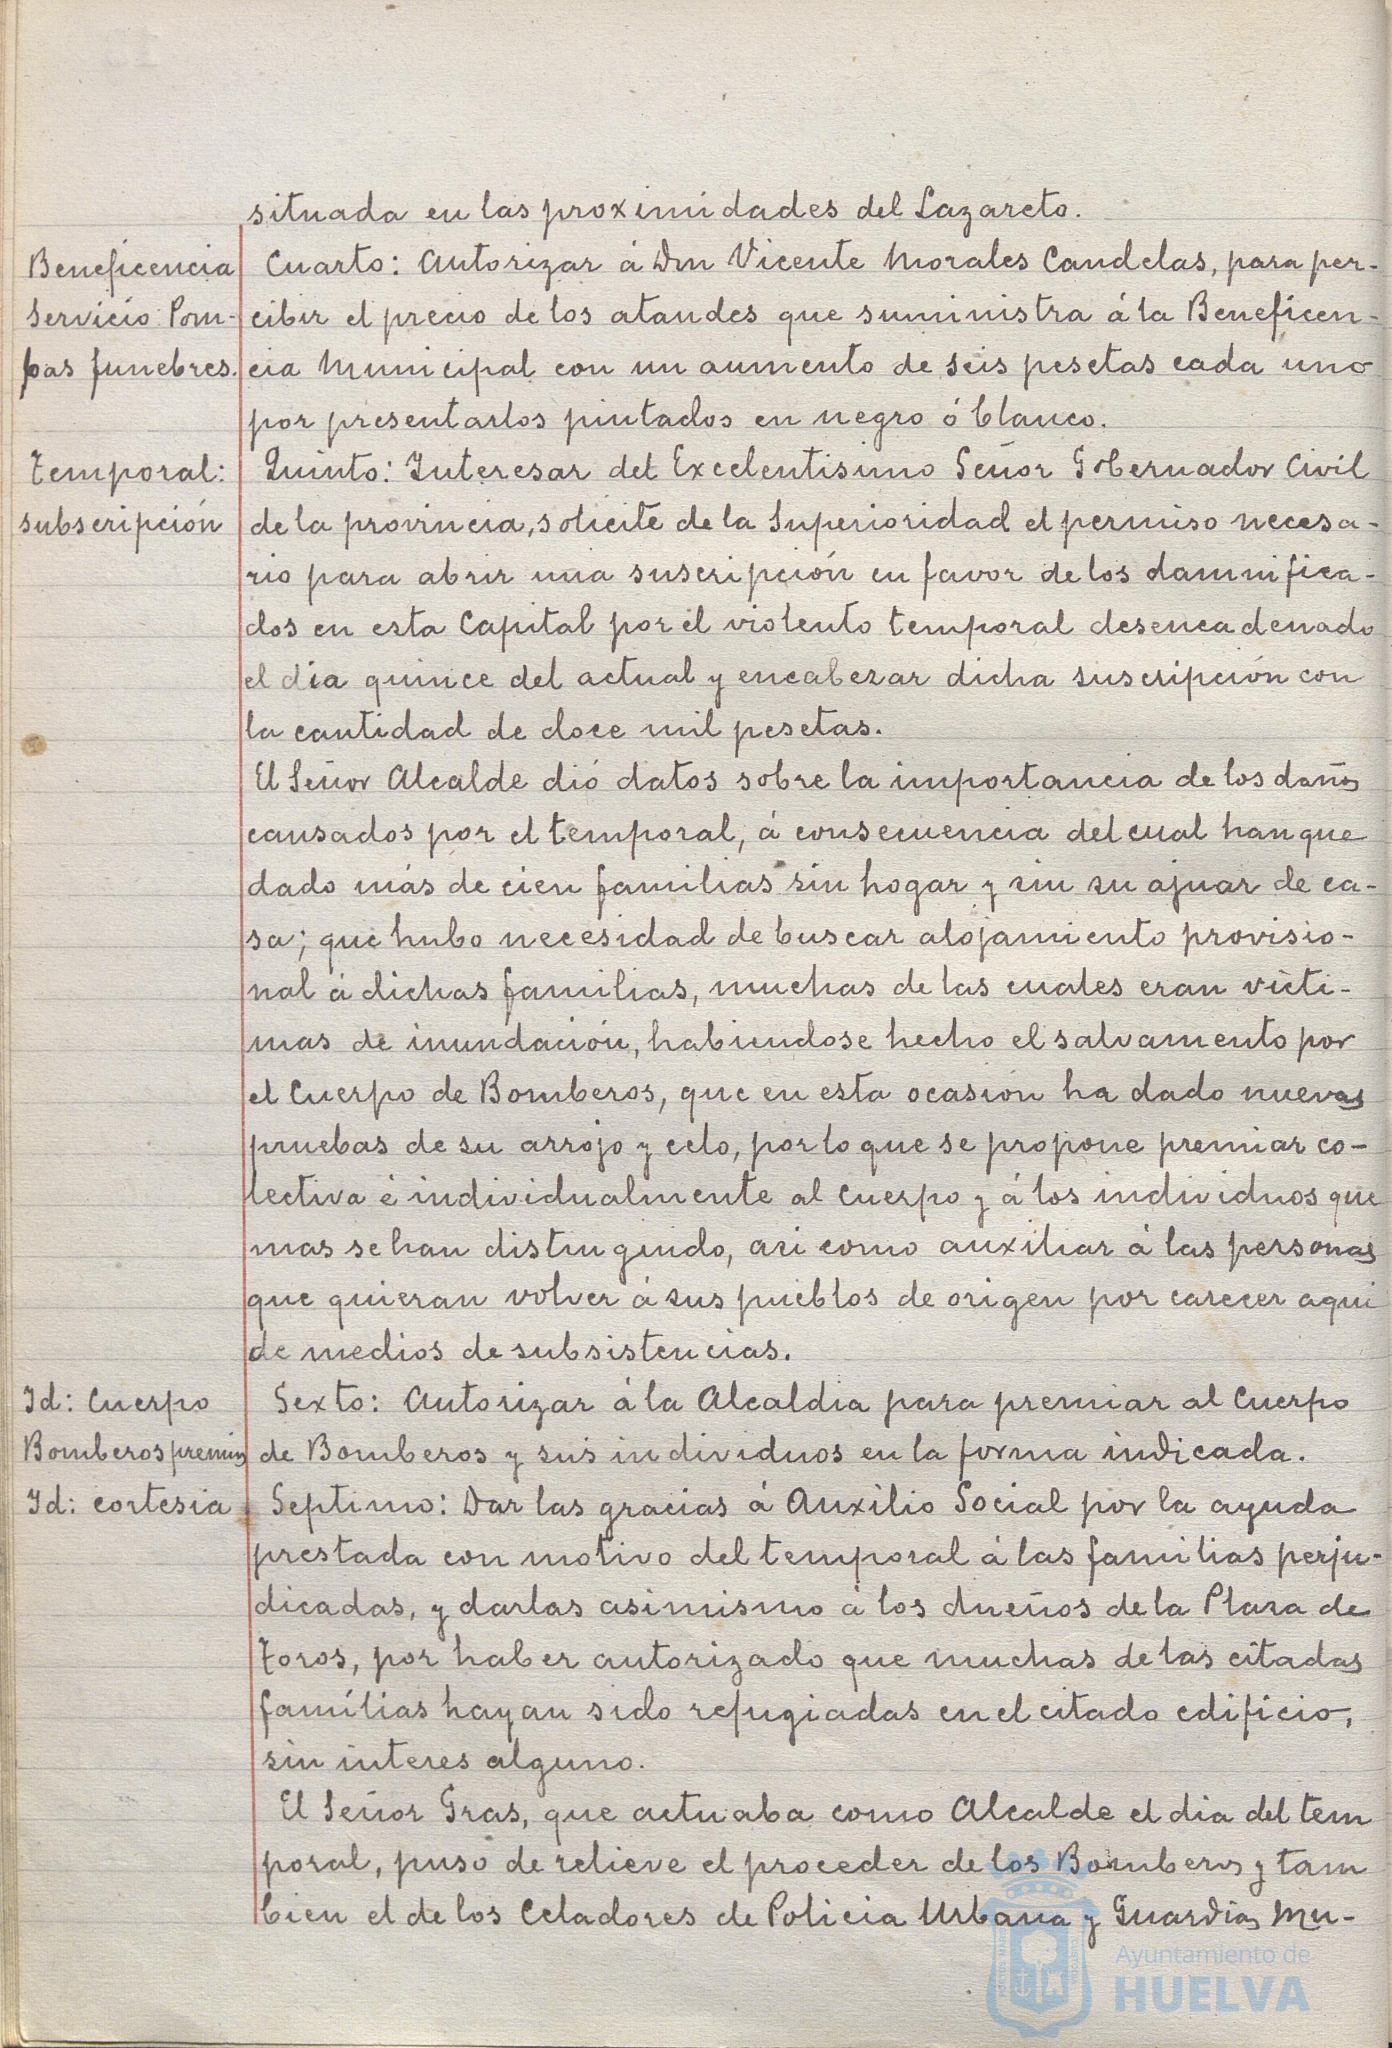 situada en las proximidades del Lazareto.
Beneficencia
Servicio Pom-
pas funebres.
Cuarto: Autorizar á Don Vicente Morales Candelas, para per-
cibir el precio de los ataudes que suministra á la Beneficen-
cia Municipal con un aumento de seis pesetas cada uno
por presentarlos pintados en negro ó blanco.
Temporal:
subscripción
Quinto: Interesar del Excelentisimo Señor Gobernador Civil
de la provincia, solicite de la Superioridad el permiso necesa-
rio para abrir una suscripción en favor de los damnifica-
dos en esta Capital por el violento temporal desencadenado
el dia quince del actual y encabezar dicha suscripción con
la cantidad de doce mil pesetas.
El Señor Alcalde dió datos sobre la importancia de los daños
causados por el temporal, á consecuencia del cual han que
dado más de cien familias sin hogar y sin su ajuar de ca-
sa; que hubo necesidad de buscar alojamiento provisio-
nal á dichas familias, muchas de las cuales eran victi-
mas de inundación, habiendose hecho el salvamento por
el Cuerpo de Bomberos, que en esta ocasión ha dado nuevas
pruebas de su arrojo y celo, por lo que se propone premiar co-
lectiva é individualmente al Cuerpo y á los individuos que
mas se han distinguido, asi como auxiliar á las personas
que quieran volver á sus pueblos de origen por carecer aqui
de medios de subsistencias.
Id: Cuerpo
Bomberos premios
Sexto: Autorizar á la Alcaldia para premiar al Cuerpo
de Bomberos y sus individuos en la forma indicada.
Id: cortesia
Septimo: Dar las gracias á Auxilio Social por la ayuda
prestada con motivo del temporal á las familias perju-
dicadas, y darlas asimismo á los dueños de la Plaza de
Toros, por haber autorizado que muchas de las citadas
familias hayan sido refugiadas en el citado edificio,
sin interes alguno.
El Señor Gras, que actuaba como Alcalde el dia del tem
poral, puso de relieve el proceder de los Bomberos y tam
bien el de los Celadores de Policia Urbana y Guardias Mu-
Ayuntamiento de
HUELVA